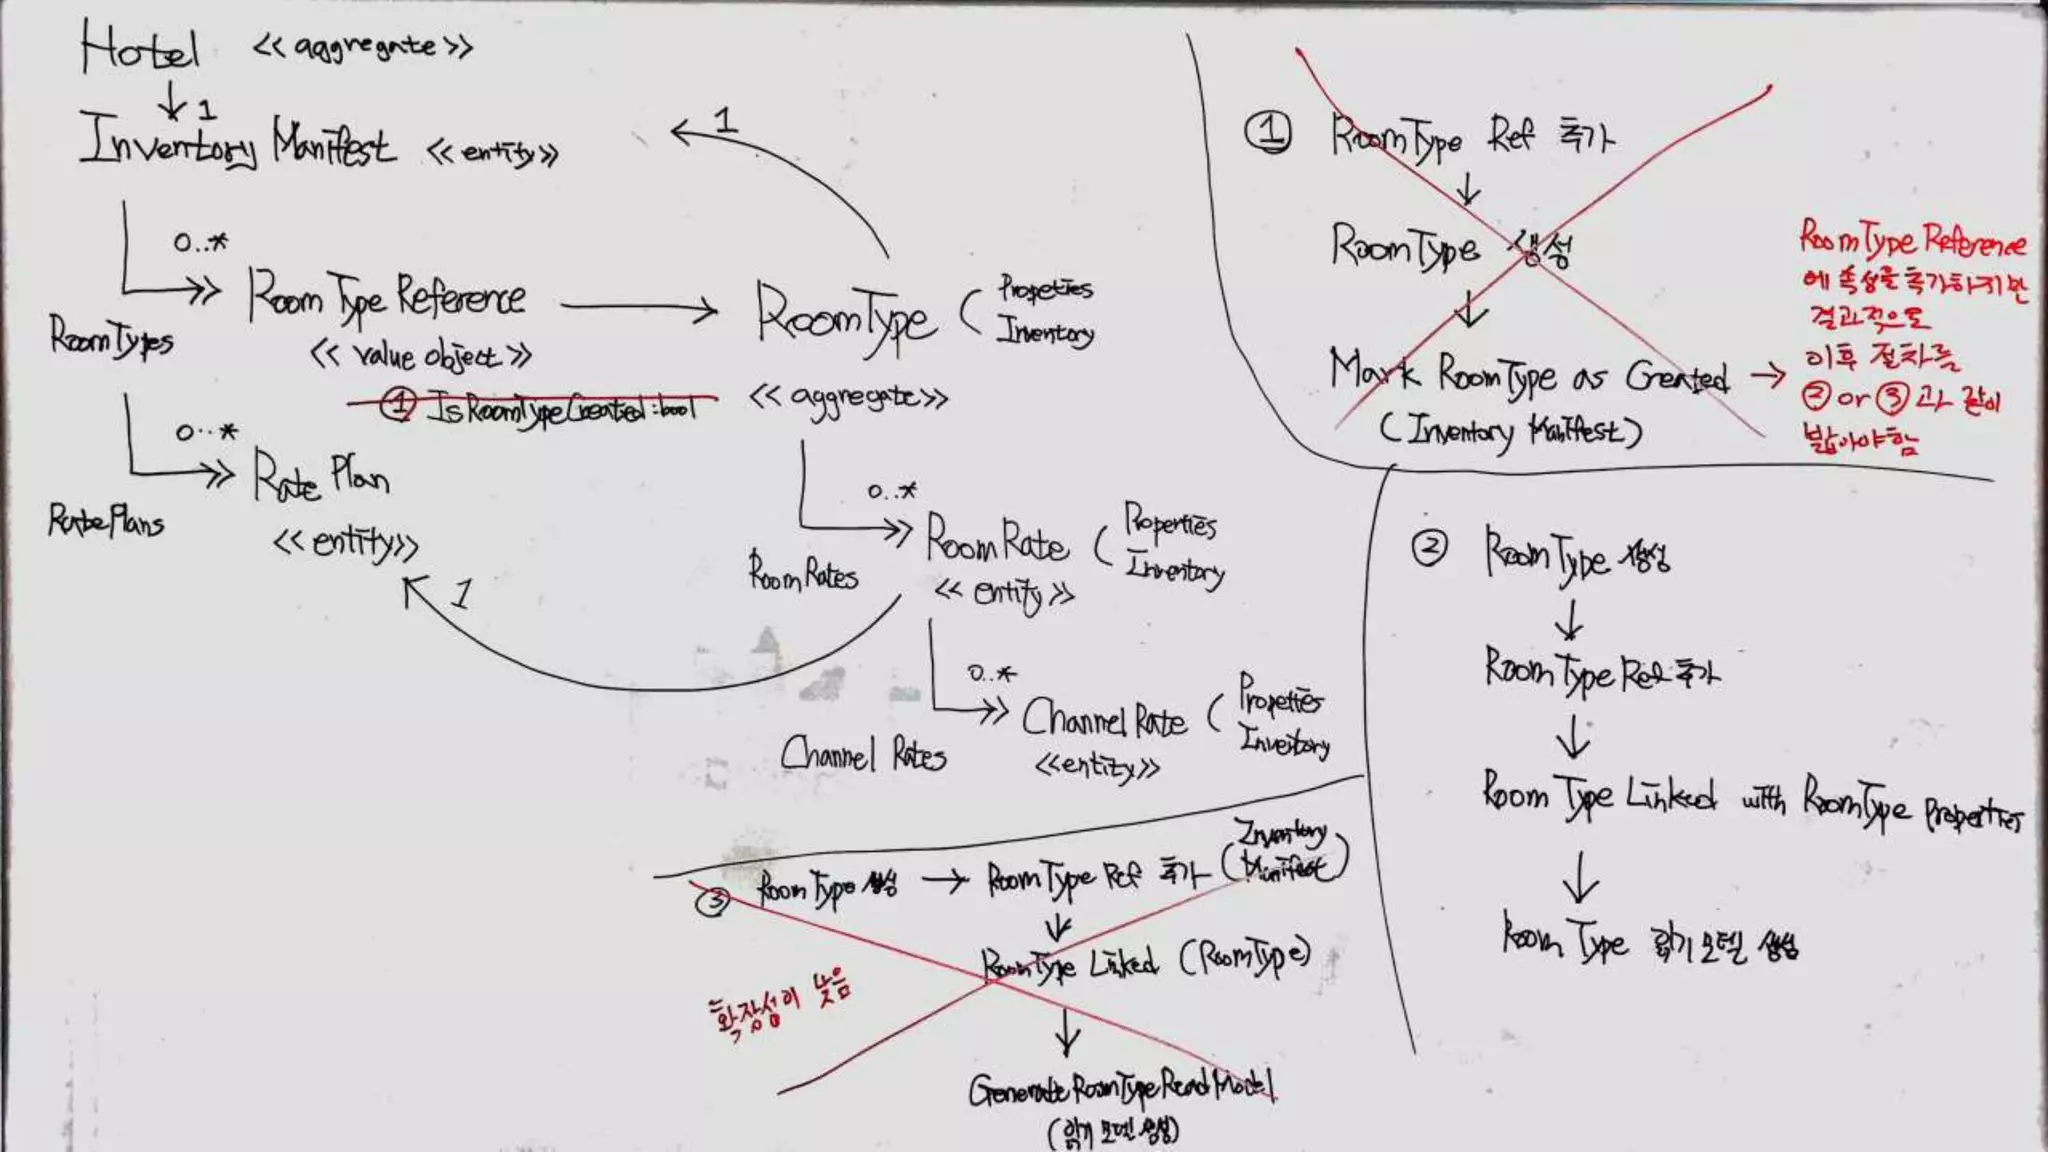 Hotel <<aggregate>>
1
Inventory Manifest <<entity>>
1
0..*
RoomTypes
Room Type Reference
<<value object>>
① IsRoomTypeCreated:bool
RoomType ( Propeties
Inventory
<<aggregate>>
0..*
RatePlans
Rate Plan
<<entity>>
1
0..*
RoomRates
RoomRate ( Properties
Inventory
<<entity>>
0..*
Channel Rates
ChannelRate ( Properties
Inventory
<<entity>>
① RoomType Ref 추가
RoomType 생성
Mark RoomType as Created
(Inventory Manifest)
RoomType Reference
에 속성을 추가하지만
결과적으로
이후 절차를
② or ③과 같이
밟아야함
② RoomType 생성
RoomType Ref 추가
Room Type Linked with RoomType Properties
Room Type 읽기 모델 생성
③ RoomType 생성 → RoomType Ref 추가 (Inventory
Manifest)
RoomType Linked (RoomType)
확장성이 낮음
GenerateRoomTypeReadModel
(읽기 모델 생성)